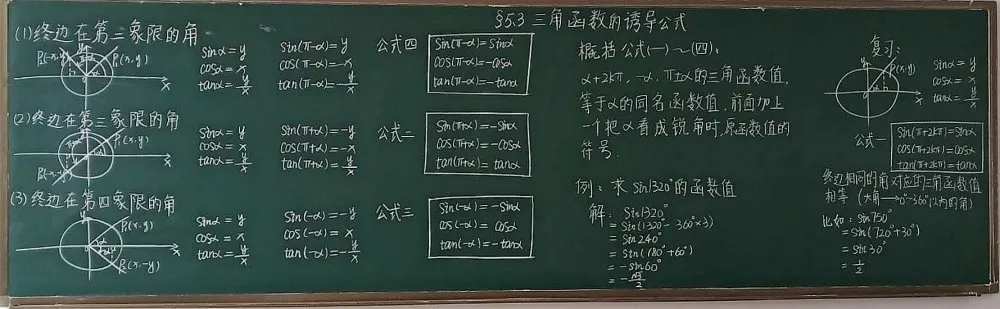 §5.3 三角函数的诱导公式
(1)终边在第三象限的角
P₂(-x,y)
P₁(x,y)
sinα = y
cosα = x
tanα = y/x
sin(π-α) = y
cos(π-α) = -x
tan(π-α) = -y/x
公式四
sin(π-α) = sinα
cos(π-α) = -cosα
tan(π-α) = -tanα
(2)终边在第三象限的角
P₁(x,y)
sinα = y
cosα = x
tanα = y/x
sin(π+α) = -y
cos(π+α) = -x
tan(π+α) = y/x
公式二
sin(π+α) = -sinα
cos(π+α) = -cosα
tan(π+α) = tanα
(3)终边在第四象限的角
P₁(x,y)
P₂(x,-y)
sinα = y
cosα = x
tanα = y/x
sin(-α) = -y
cos(-α) = x
tan(-α) = -y/x
公式三
sin(-α) = -sinα
cos(-α) = cosα
tan(-α) = -tanα
概括公式(一)~(四):
α+2kπ, -α, π±α的三角函数值,
等于α的同名函数值,前面加上
一个把α看成锐角时,原函数值的
符号.
例: 求sin1320°的函数值
解: sin1320°
= sin(1320°- 360°×3)
= sin240°
= sin(180°+60°)
= -sin60°
= -√3/2
复习:
P(x,y)
sinα = y
cosα = x
tanα = y/x
公式一
sin(π+2kπ)=sinα
cos(π+2kπ)=cosα
tan(π+2kπ)=tanα
终边相同的角对应的三角函数值
相等 (大角→0°~360°以内的角)
比如: sin750°
= sin(720°+30°)
= sin30°
= 1/2